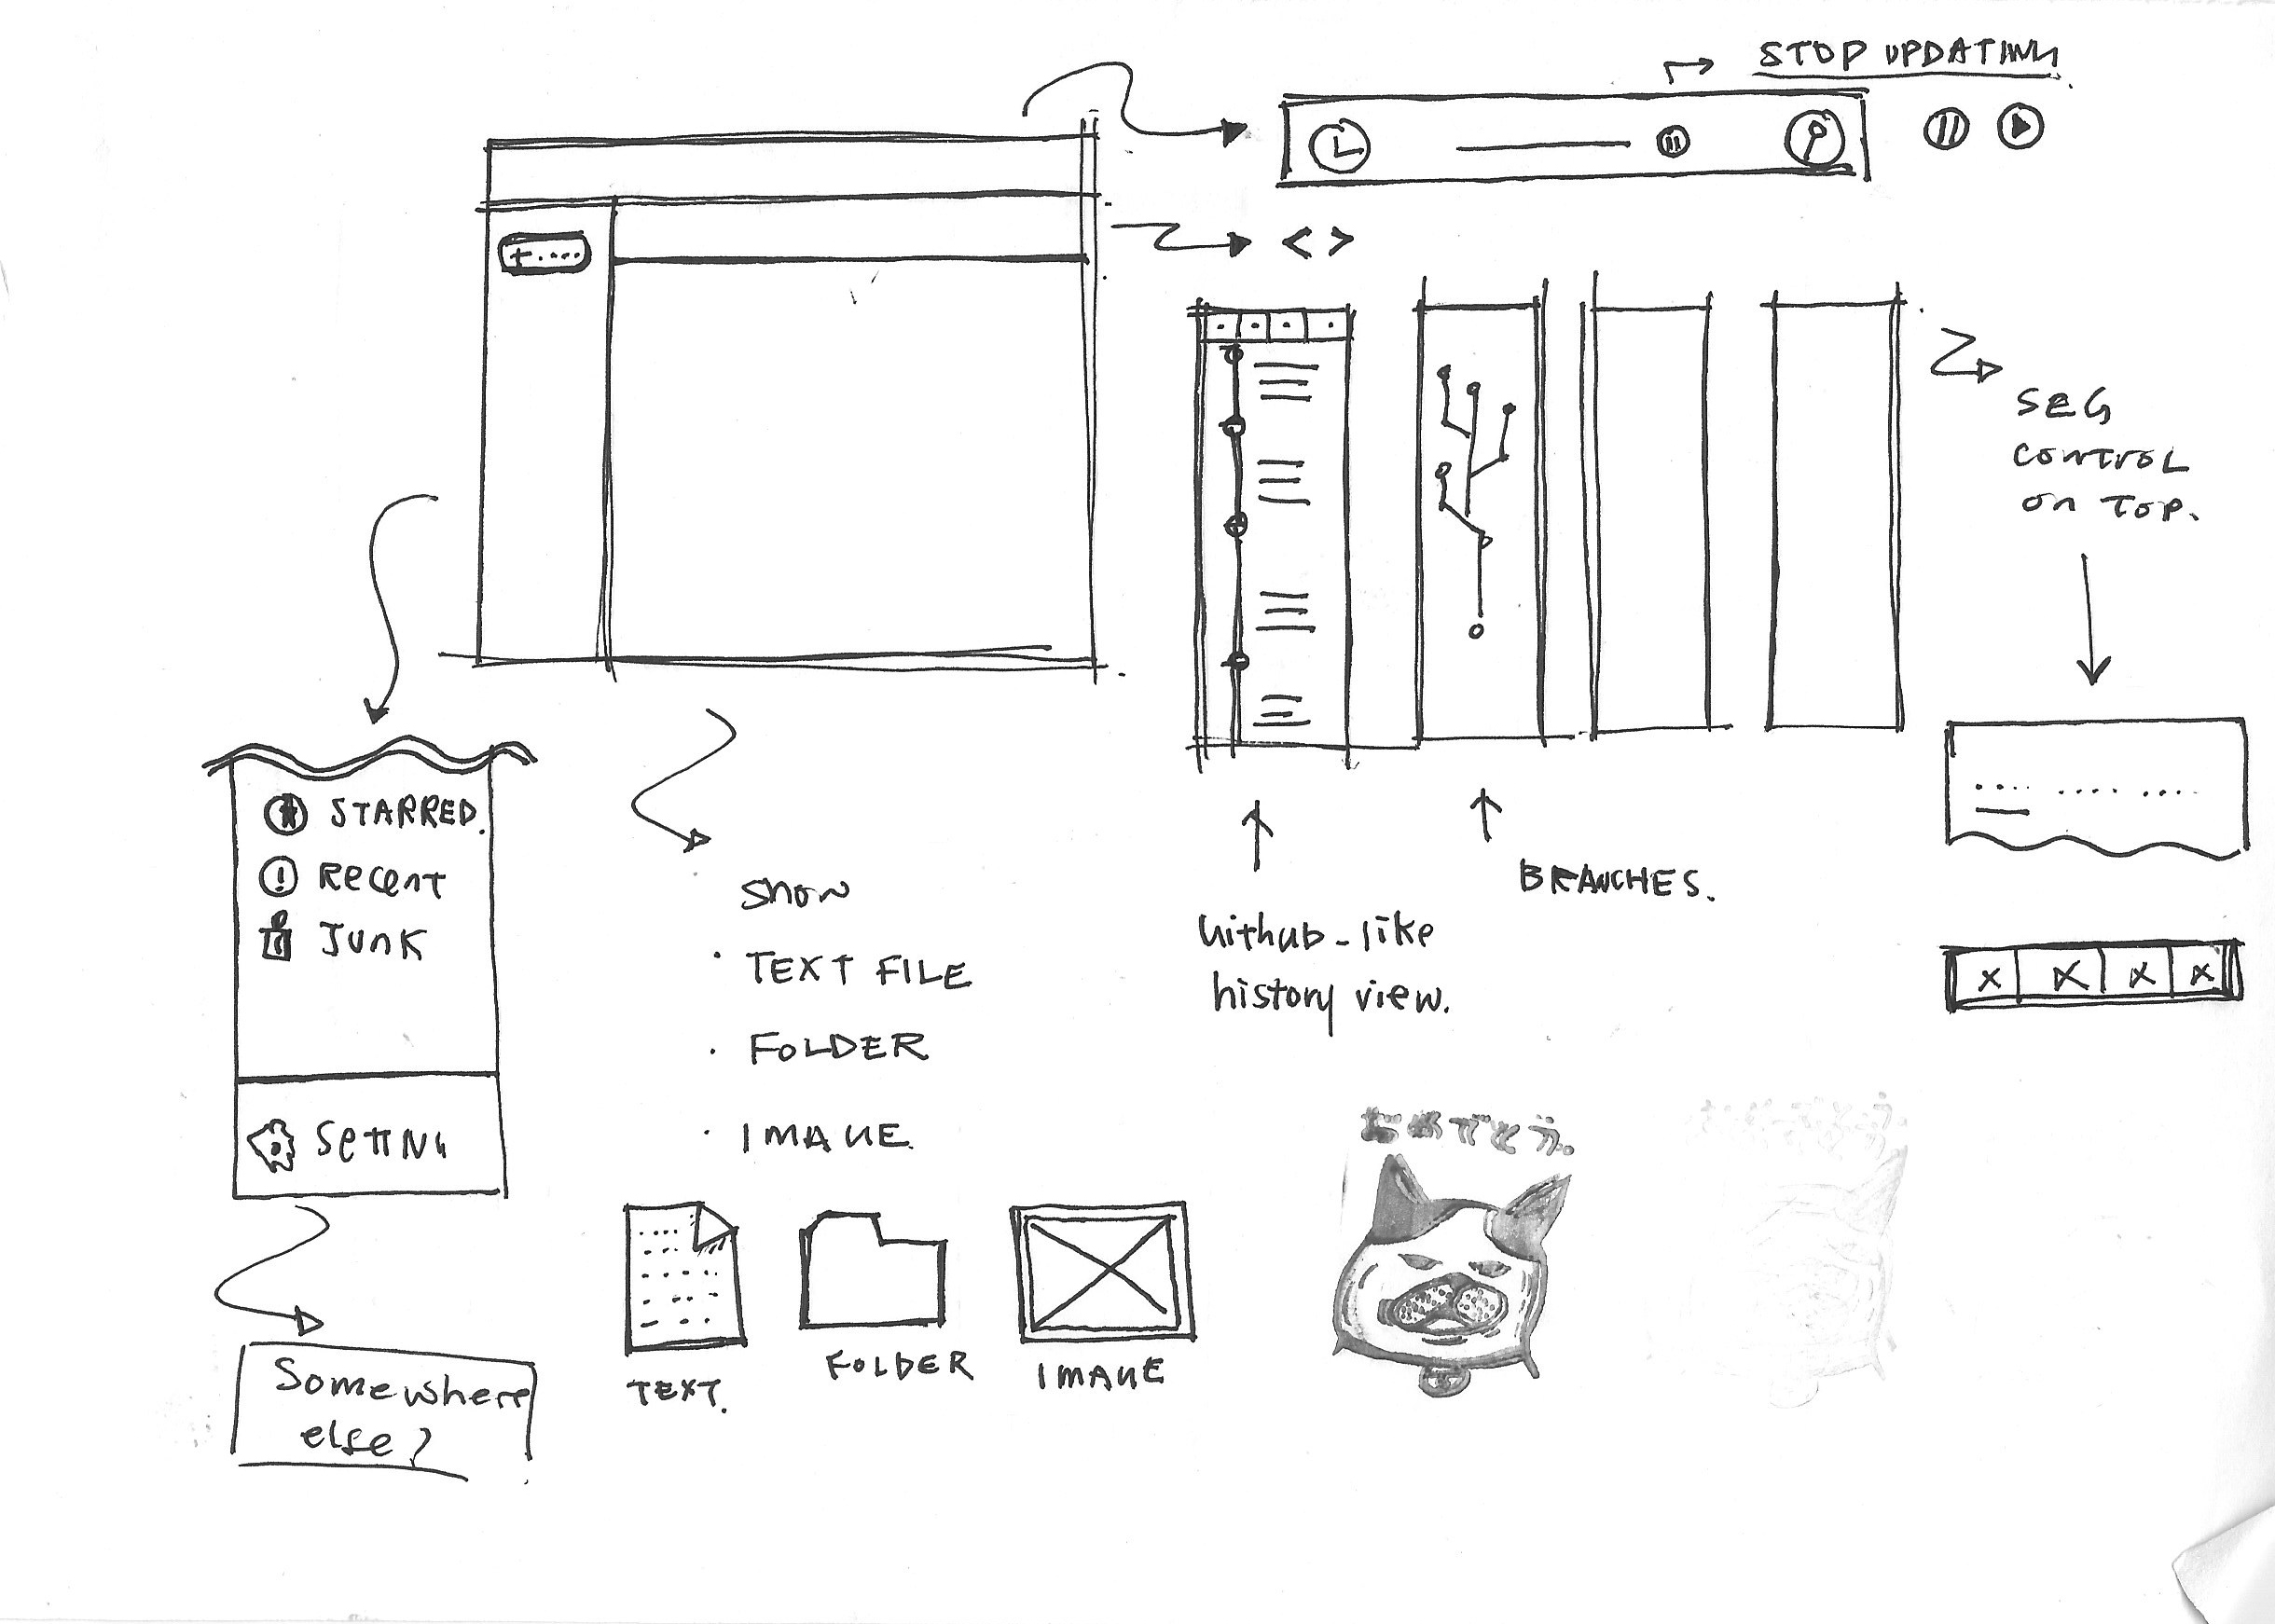 STOP UPDATING
< >
SEG
CONTROL
ON TOP.
STARRED.
Recent
JUNK
SETTING
Somewhere
else?
SHOW
· TEXT FILE
· FOLDER
· IMAGE
TEXT.
FOLDER
IMAGE
Github-like
history view.
BRANCHES.